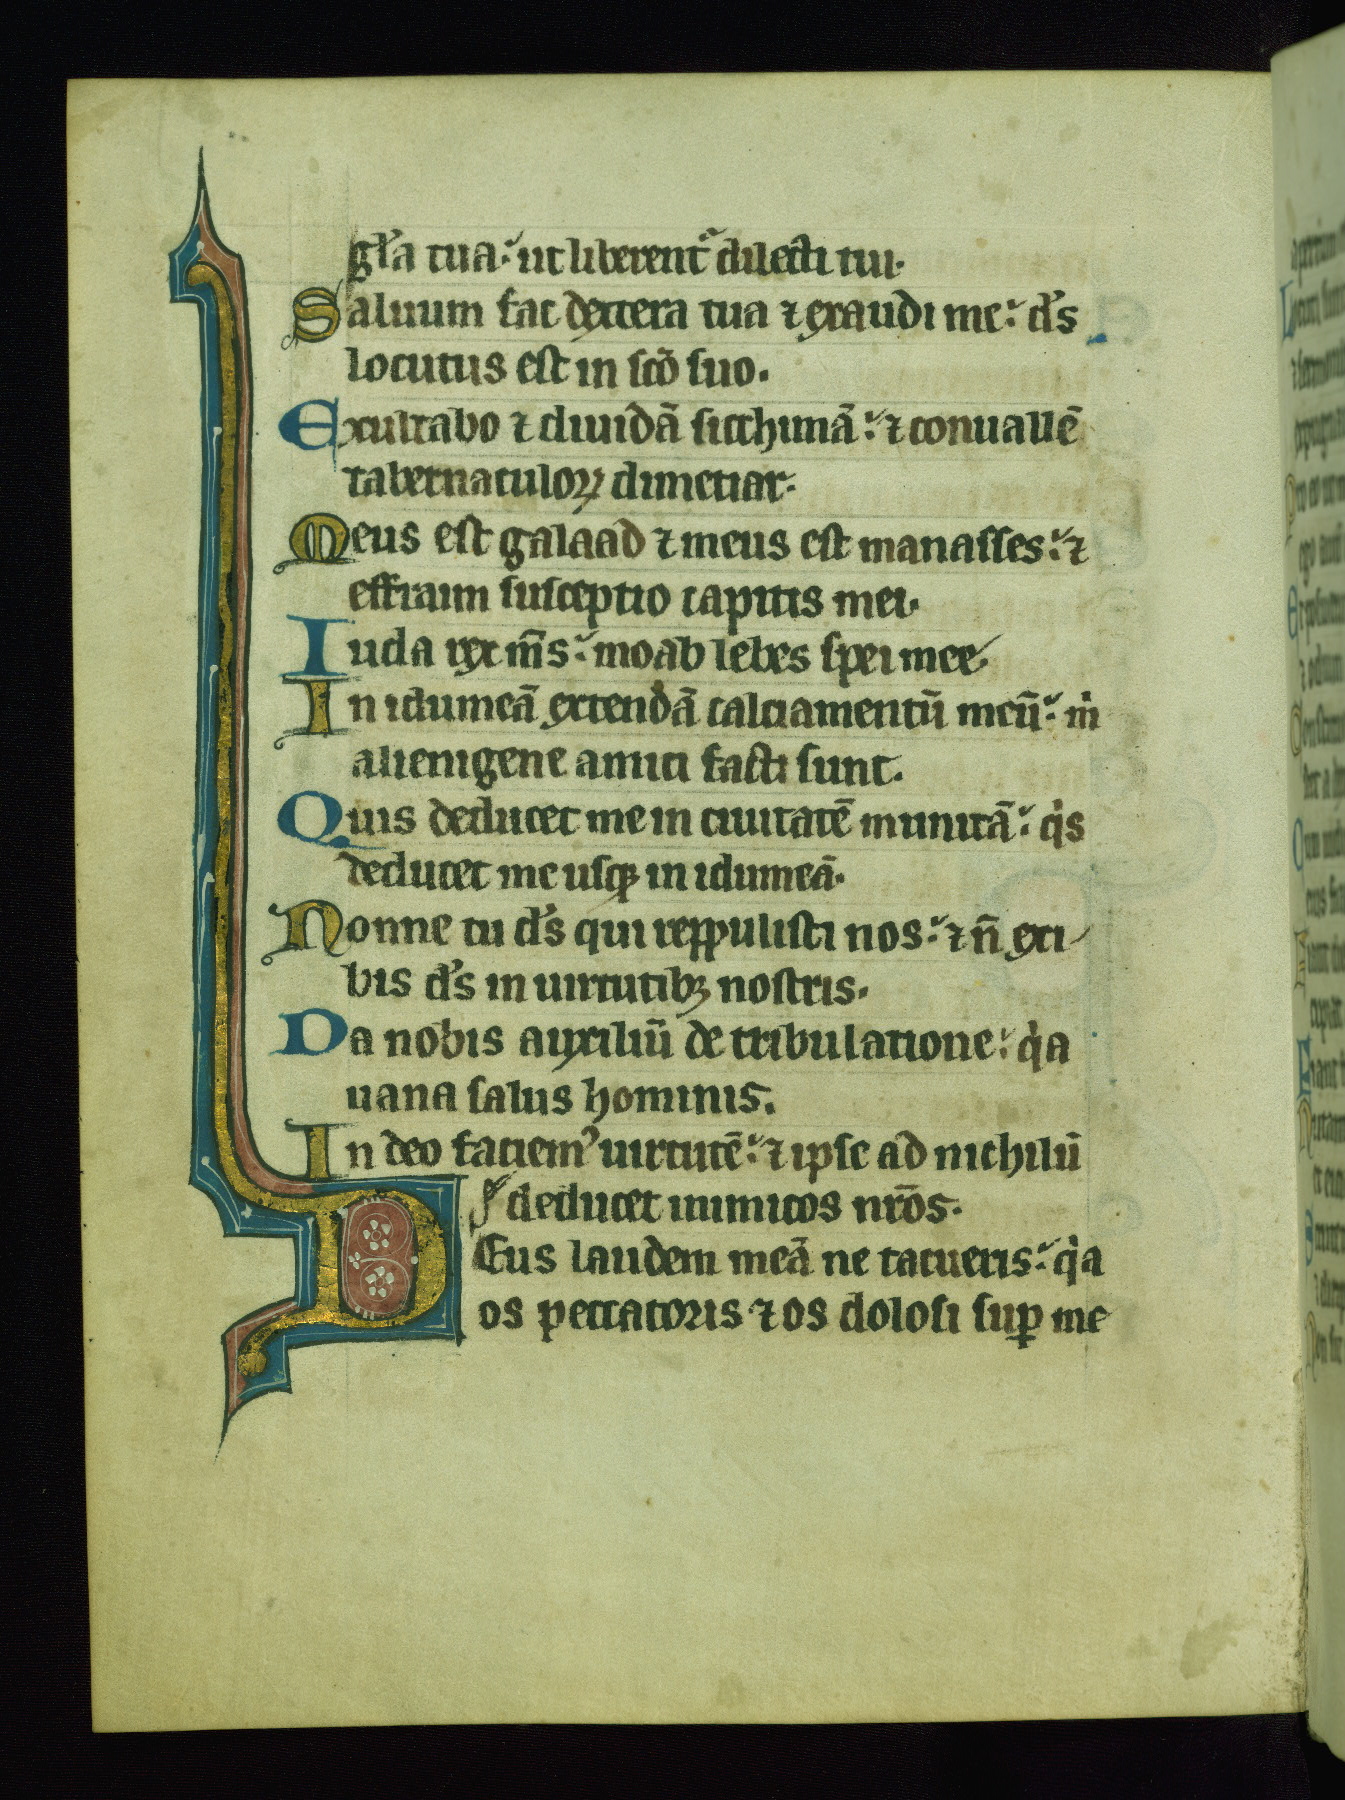 gl̃a tua: ut liberent᷑ dilecti tui.
Saluum fac dextera tua ⁊ exaudi me: ds̃
locutus est in sc̃o suo.
Exultabo ⁊ diuidã sicchimã: ⁊ conuallẽ
tabernaculoꝝ dimetiar.
Meus est galaad ⁊ meus est manasses: ⁊
effraim susceptio capitis mei.
Iuda rex ms̃: moab lebes spei mee
In idumeã extendã calciamentũ meũ: m̍
alienigene amici facti sunt.
Quis deducet me in ciuitatẽ munitã: q̍s
deducet me usqꝫ in idumeã.
Nonne tu ds̃ qui reppulisti nos: ⁊ ñ exi
bis ds̃ in uirtutibꝫ nostris.
Da nobis auxiliũ de tribulatione: q̍a
uana salus hominis.
In deo faciemꝰ uirtutẽ: ⁊ ipse ad nichilũ
deducet inimicos nr̃os.
Deus laudem meã ne tacueris: q̍a
os peccatoris ⁊ os dolosi suꝑ me